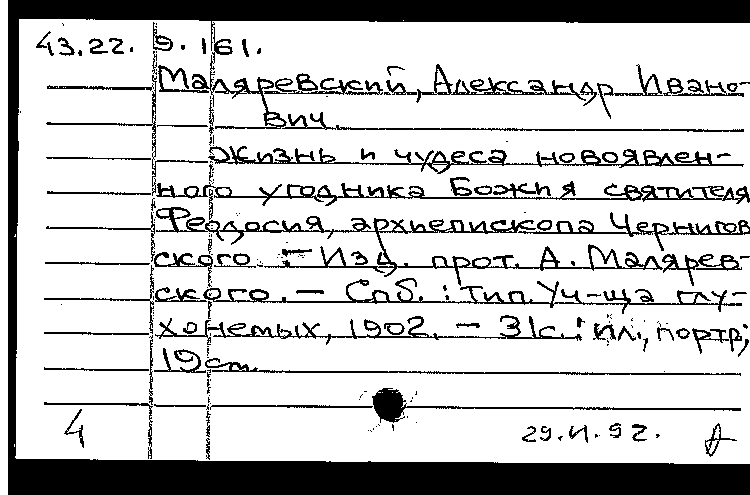 43.22. 9.161.
Маляревский, Александр Ивано-
вич.
Жизнь и чудеса новоявлен-
ного угодника Божия святителя
Феодосия, архиепископа Чернигов
ского. - Изд. прот. А. Малярев-
ского. - Спб. : Тип. Уч-ща глу-
хонемых, 1902. - 31с. : ил., портр;
19 см.
4 29.VI.92.